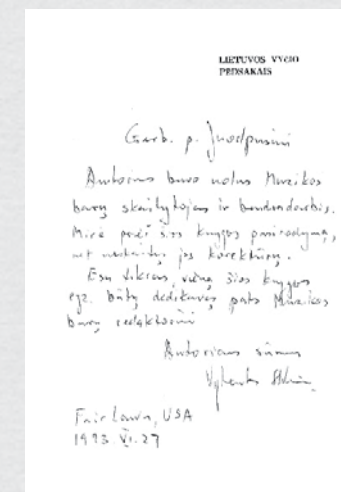 LIETUVOS VYČIO
PĖDSAKAIS
Garb. p. Juodpusiui
Autorius buvo nolus Muzikos
barų skaitytojas ir bendradarbis.
Mirė prieš šios knygos pasirodymą,
net jos korektūrų.
Esu tikras, vieną šios knygos
egz. būtų dedikavęs pats Muzikos
barų redaktoriui
Autoriaus sūnus
Fair Lawn, USA
1993.VI.27